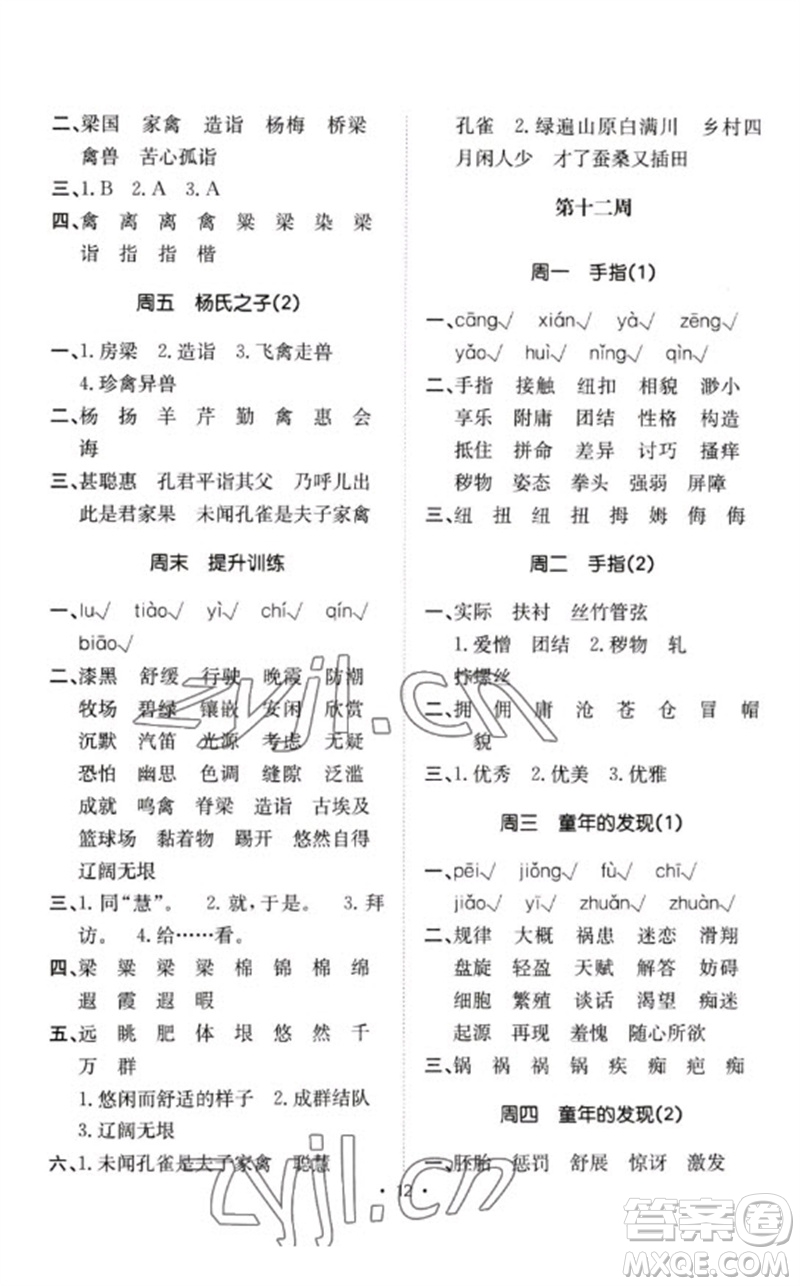 二、梁国 家禽 造诣 杨梅 桥梁
禽兽 苦心孤诣
三、1.B 2.A 3.A
四、禽 离 离 禽 粱 梁 染 梁
诣 指 指 楷
周五 杨氏之子(2)
一、1.房梁 2.造诣 3.飞禽走兽
4.珍禽异兽
二、杨 扬 羊 芹 勤 禽 惠 会
诲
三、甚聪惠 孔君平诣其父 乃呼儿出
此是君家果 未闻孔雀是夫子家禽
周末 提升训练
一、lu√ tiào√ yì√ chí√ qín√
biāo√
二、漆黑 舒缓 行驶 晚霞 防潮
牧场 碧绿 镶嵌 安闲 欣赏
沉默 汽笛 光源 考虑 无疑
恐怕 幽思 色调 缝隙 泛滥
成就 鸣禽 脊梁 造诣 古埃及
篮球场 黏着物 踢开 悠然自得
辽阔无垠
三、1.同“慧”。 2.就,于是。 3.拜
访。 4.给……看。
四、梁 粱 梁 梁 棉 锦 棉 绵
遐 霞 遐 暇
五、远 眺 肥 体 垠 悠 然 千
万 群
1.悠闲而舒适的样子 2.成群结队
3.辽阔无垠
六、1.未闻孔雀是夫子家禽 聪慧
孔雀 2.绿遍山原白满川 乡村四
月闲人少 才了蚕桑又插田
第十二周
周一 手指(1)
一、cāng√ xián√ yà√ zēng√
yǎo√ huì√ nǐng√ qìn√
二、手指 接触 纽扣 相貌 渺小
享乐 附庸 团结 性格 构造
抵住 拼命 差异 讨巧 搔痒
秽物 姿态 拳头 强弱 屏障
三、纽 扭 纽 扭 拇 姆 侮 侮
周二 手指(2)
一、实际 扶衬 丝竹管弦
1.爱憎 团结 2.秽物 轧
拧螺丝
二、拥 佣 庸 沧 苍 仓 冒 帽
貌
三、1.优秀 2.优美 3.优雅
周三 童年的发现(1)
一、pēi√ jiǒng√ fù√ chī√
jiǎo√ yī√ zhuǎn√ zhuǎn√
二、规律 大概 祸患 迷恋 滑翔
盘旋 轻盈 天赋 解答 妨碍
细胞 繁殖 谈话 渴望 痴迷
起源 再现 羞愧 随心所欲
三、锅 祸 祸 锅 疾 痴 疤 痴
周四 童年的发现(2)
一、胚胎 惩罚 舒展 惊讶 激发
·12·
zyjl.cn
zyjl.cn
答案圈
MXQE.COM